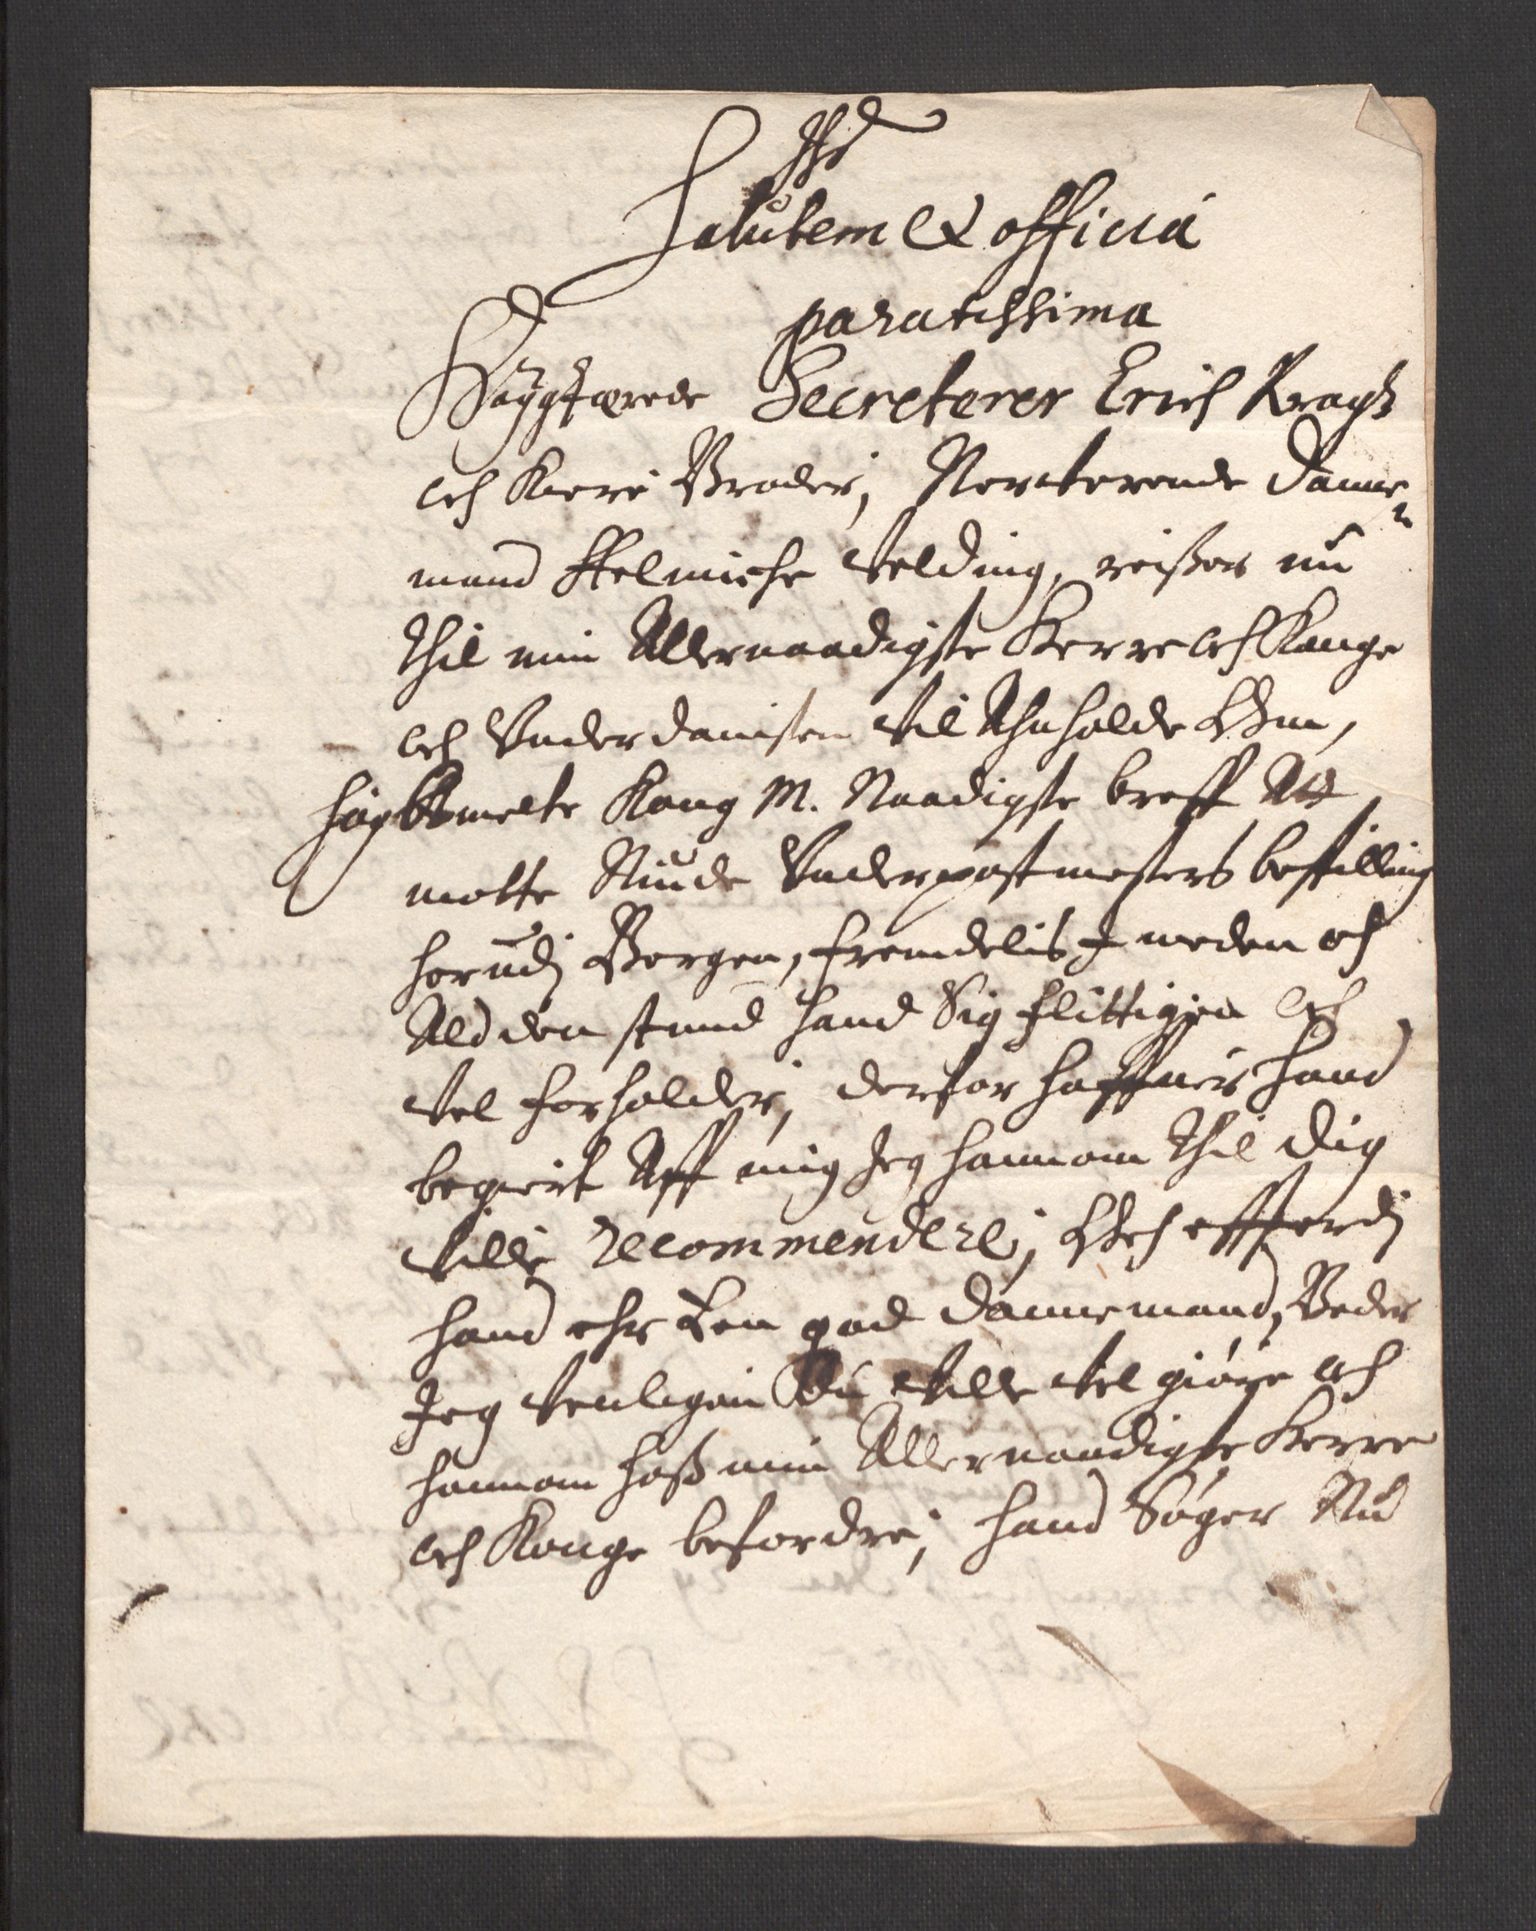 IHS
Salutem & officia
paratissima
Høygtærede Secreterer Erich Kragh
och Kiere Broder, Nerverende Danne-
mand Helmiche Velding, reißer nu
thil min Allernaadigste Herre och Konge
och Underdanisten vil Anholde Om,
høybemelte Kong M. Naadigste breff Att
motte Niude Underpostmesters bestilling
herudj Bergen, fremdelis I meden och
Ald den stund hand Sig flittigen och
vel forholder, derfor haffuer hand
begiert Aff mig Jeg hannom thil dig
ville recommendere, Och effterdj
hand ehr Een god Dannemand, Beder
Jeg venligen Du ville vel giøre och
hannom hoß min Allernaadigste Herre
och Konge befordre, hand Søger Nu